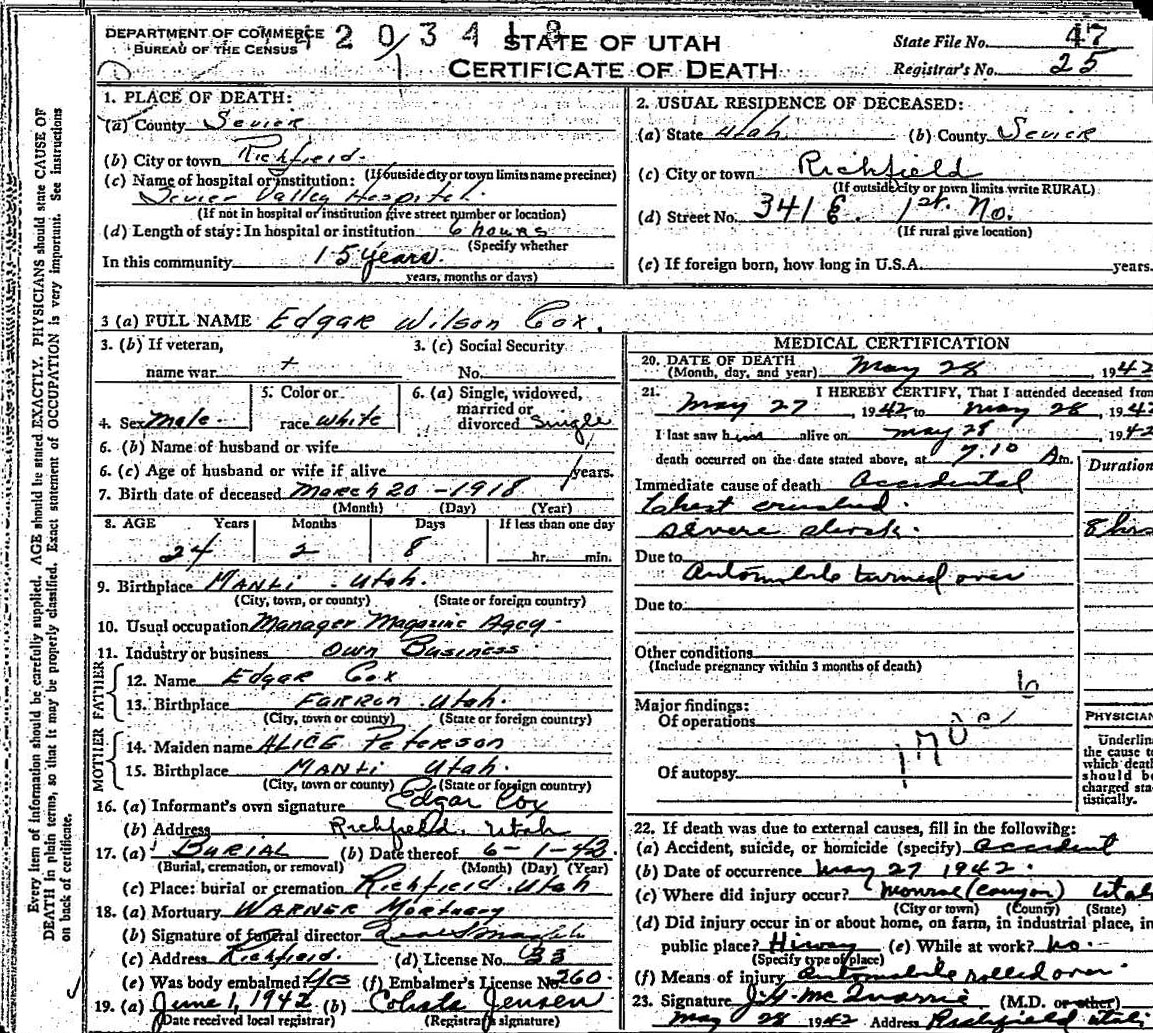 DEPARTMENT OF COMMERCE
BUREAU OF THE CENSUS
STATE OF UTAH
CERTIFICATE OF DEATH
State File No. 47
Registrar's No. 25
Every item of information should be carefully supplied. AGE should be stated EXACTLY. PHYSICIANS should state CAUSE OF
DEATH in plain terms, so that it may be properly classified. Exact statement of OCCUPATION is very important. See instructions
on back of certificate.
1. PLACE OF DEATH:
(a) County Sevier
(b) City or town Richfield
(If outside city or town limits name precinct)
(c) Name of hospital or institution:
Sevier Valley Hospital
(If not in hospital or institution give street number or location)
(d) Length of stay: In hospital or institution 6 hours
(Specify whether
In this community 15 years
years, months or days)
2. USUAL RESIDENCE OF DECEASED:
(a) State Utah (b) County Sevier
(c) City or town Richfield
(If outside city or town limits write RURAL)
(d) Street No. 341 E. 1st. No.
(If rural give location)
(e) If foreign born, how long in U.S.A. years.
3 (a) FULL NAME Edgar Wilson Cox.
3. (b) If veteran,
name war
3. (c) Social Security
No.
4. Sex Male
5. Color or
race White
6. (a) Single, widowed,
married or
divorced Single
6. (b) Name of husband or wife
6. (c) Age of husband or wife if alive years.
7. Birth date of deceased March 20 - 1918
(Month) (Day) (Year)
8. AGE Years Months Days If less than one day
24 2 8 hr. min.
9. Birthplace Manti Utah.
(City, town, or county) (State or foreign country)
10. Usual occupation Manager Magazine Agcy.
11. Industry or business Own Business
FATHER
12. Name Edgar Cox
13. Birthplace Ferron Utah.
(City, town or county) (State or foreign country)
MOTHER
14. Maiden name Alice Peterson
15. Birthplace Manti Utah.
(City, town or county) (State or foreign country)
16. (a) Informant's own signature Edgar Cox
(b) Address Richfield, Utah
17. (a) Burial (b) Date thereof 6-1-42
(Burial, cremation, or removal) (Month) (Day) (Year)
(c) Place: burial or cremation Richfield Utah
18. (a) Mortuary Warner Mortuary
(b) Signature of funeral director
(c) Address Richfield. (d) License No. 33
(e) Was body embalmed? Yes (f) Embalmer's License No. 260
19. (a) June 1, 1942 (b) Jensen
(Date received local registrar) (Registrar's signature)
MEDICAL CERTIFICATION
20. DATE OF DEATH
(Month, day, and year) May 28, 1942
21. I HEREBY CERTIFY, That I attended deceased from
May 27, 1942 to May 28, 1942
I last saw him alive on May 28, 1942
death occurred on the date stated above, at 7.10 Am.
Duration
Immediate cause of death Accidental
Chest crushed.
severe shock. 8 hrs
Due to
Automobile turned over
Due to
Other conditions
(Include pregnancy within 3 months of death)
Major findings:
Of operations
Of autopsy
PHYSICIAN
Underline
the cause to
which death
should be
charged sta-
tistically.
22. If death was due to external causes, fill in the following:
(a) Accident, suicide, or homicide (specify) accident
(b) Date of occurrence May 27 1942
(c) Where did injury occur? Monroe (Canyon) Utah
(City or town) (County) (State)
(d) Did injury occur in or about home, on farm, in industrial place, in
public place? Hiway (e) While at work? no.
(Specify type of place)
(f) Means of injury Automobile rolled over
23. Signature J.G. McQuarrie (M.D. or other)
May 28 1942 Address Richfield Utah